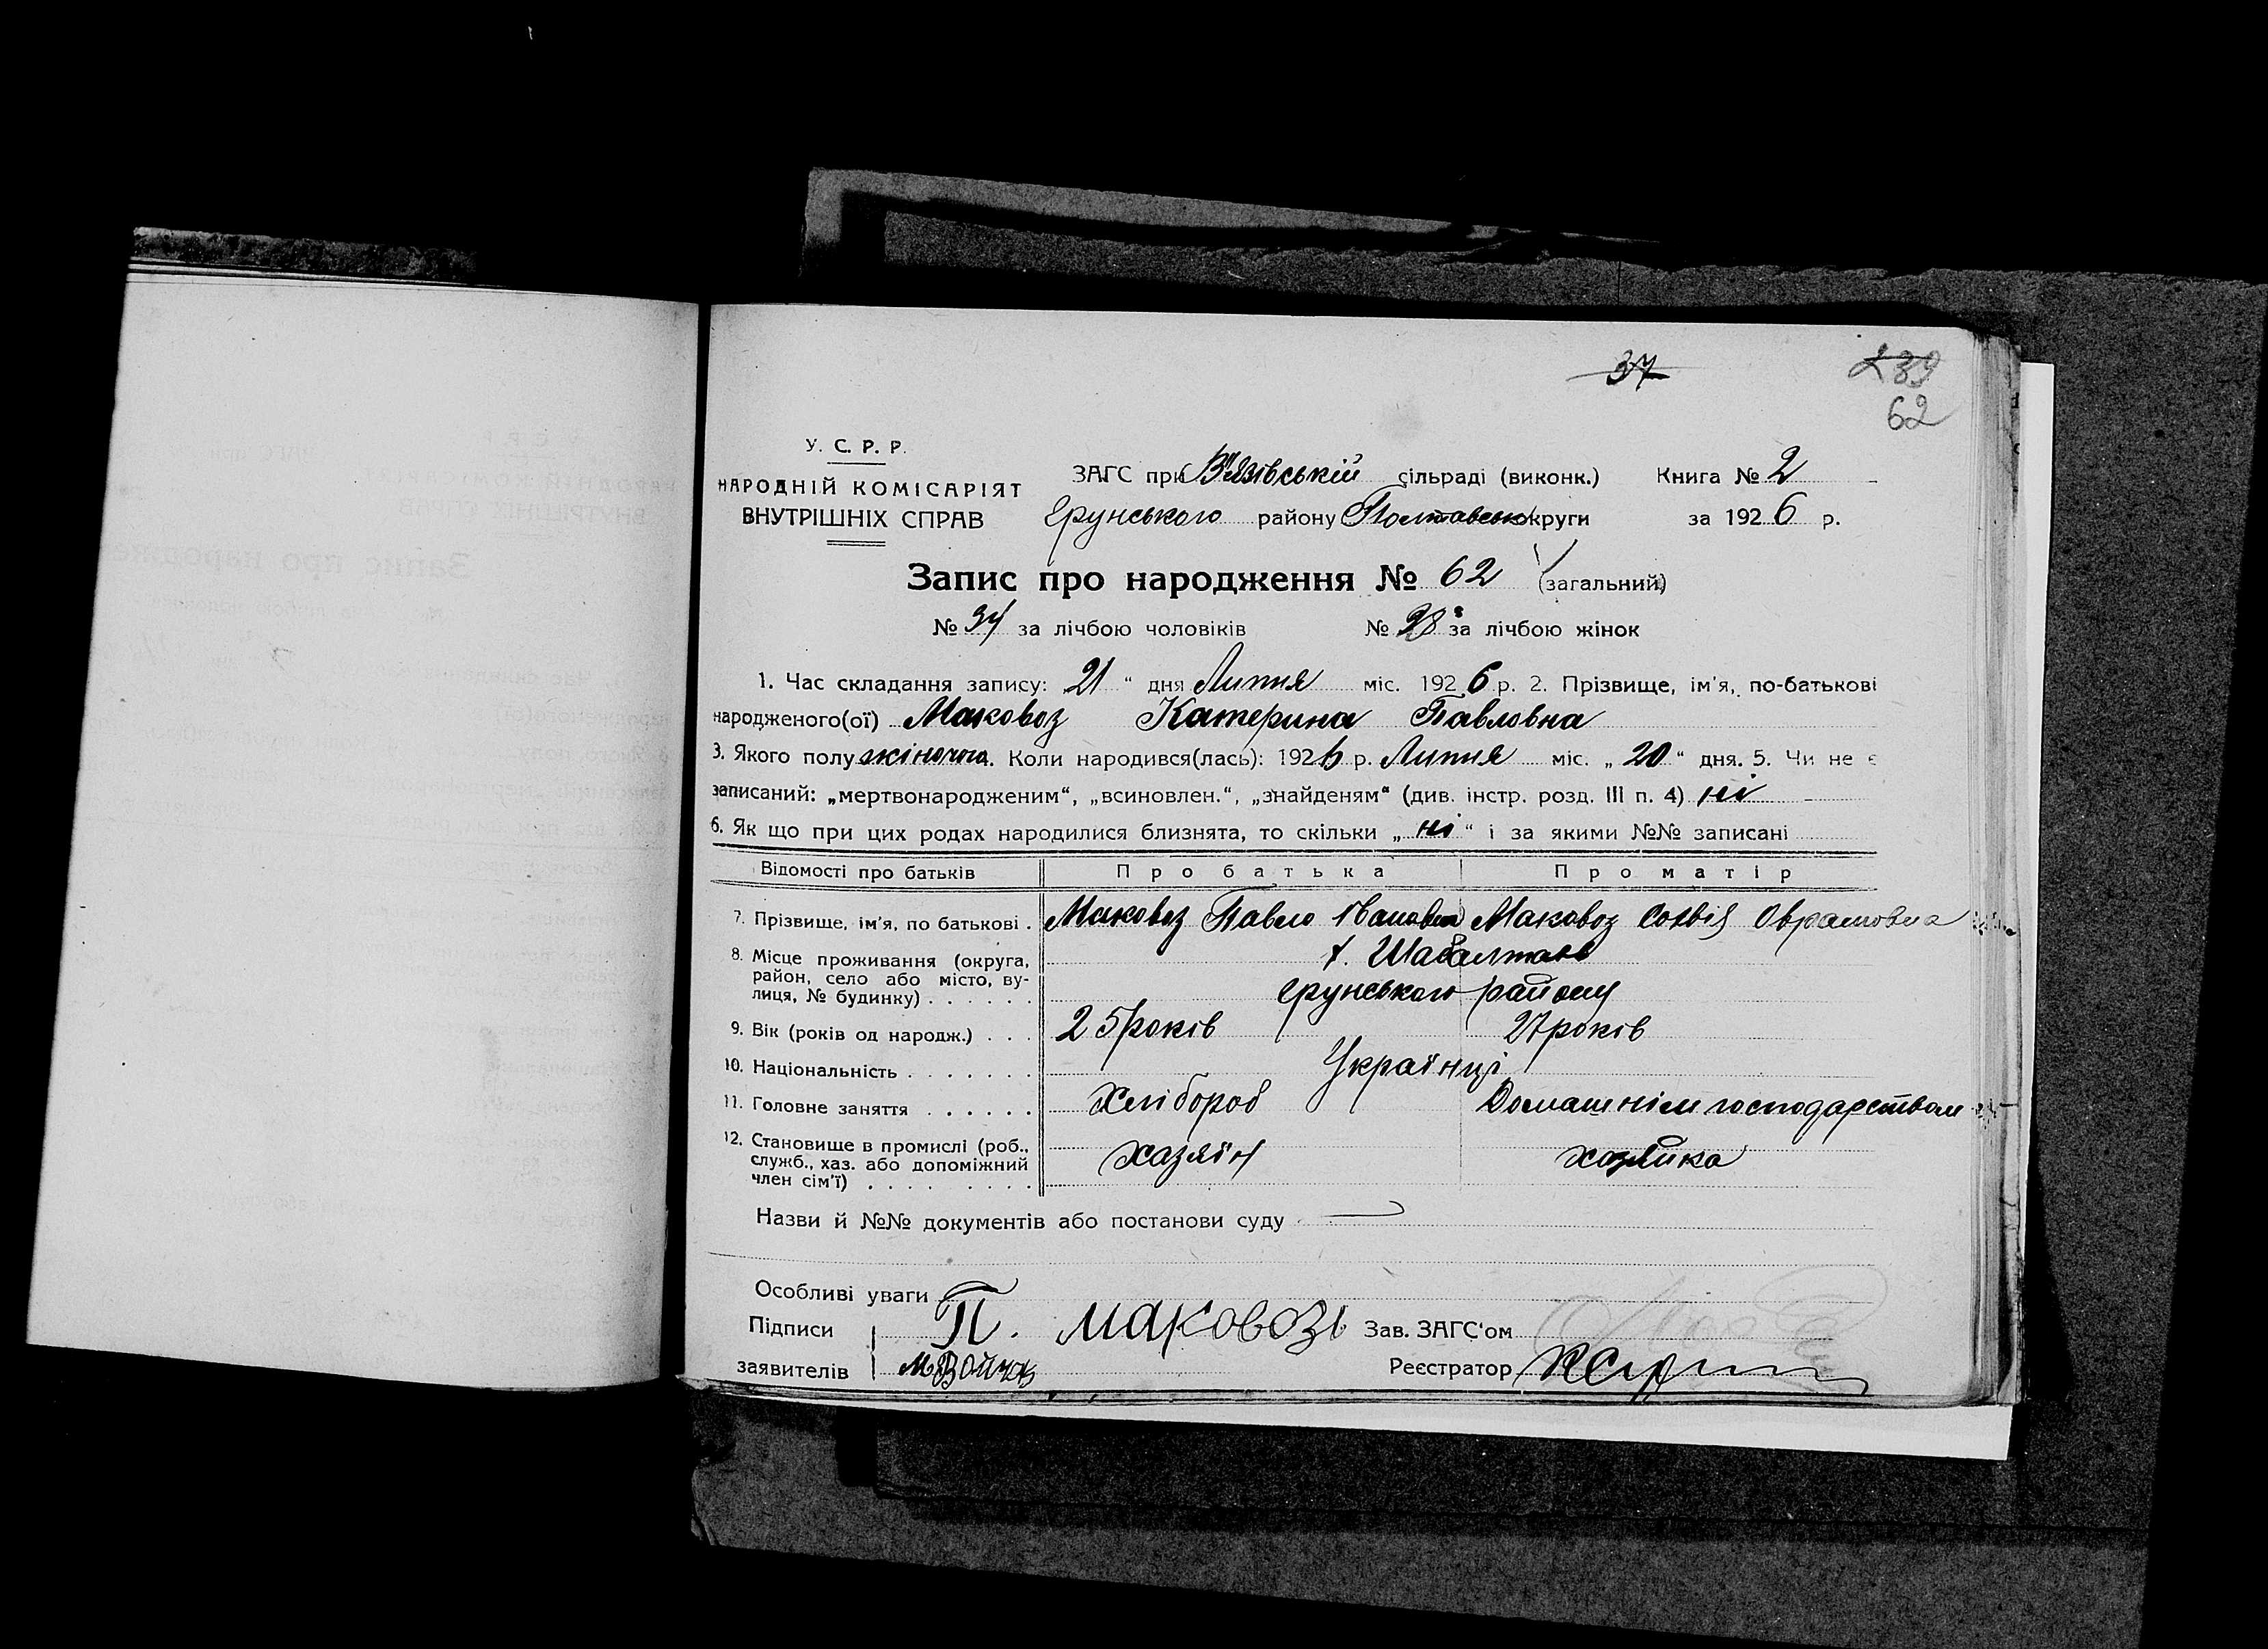 37
239
62
У. С. Р. Р.
НАРОДНІЙ КОМІСАРІЯТ
ВНУТРІШНІХ СПРАВ
ЗАГС при В'язівській сільраді (виконк.) Книга № 2
Ерунського району Полтавсько округи за 1926 р.
Запис про народження № 62 (загальний)
№ 34 за лічбою чоловіків № 28 за лічбою жінок
1. Час складання запису: 21 “ дня Липня міс. 1926 р. 2. Прізвище, ім'я, по-батькові
народженого(ої) Маковоз Катерина Павловна
3. Якого полу жіночого. Коли народився(лась): 1926 р. Липня міс. „ 20 “ дня. 5. Чи не є
записаний: „мертвонародженим“, „всиновлен.“, „знайденям“ (див. інстр. розд. III п. 4) ні
6. Як що при цих родах народилися близнята, то скільки „ ні “ і за якими №№ записані
Відомості про батьків Про батька Про матір
7. Прізвище, ім'я, по батькові . Маковоз Павло Іванович Маковоз Софія Оврамовна
8. Місце проживання (округа, район, село або місто, вулиця, № будинку) . . . . . . х. Шабалтаєв
Ерунського району
9. Вік (років од народж.) . . . 25 років 27 років
10. Національність . . . . . . . Українці
11. Головне заняття . . . . . . Хлібороб Домашнім господарством
12. Становище в промислі (роб., служб., хаз. або допоміжний член сім'ї) . . . . . . . . хазяїн хазяйка
Назви й №№ документів або постанови суду
Особливі уваги
Підписи П. Маковозь Зав. ЗАГС'ом
заявителів Реєстратор